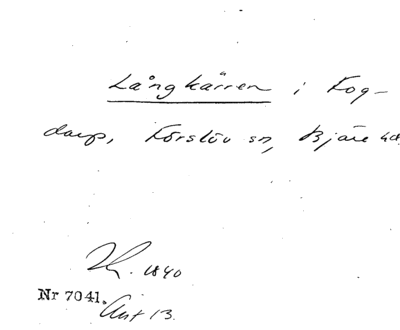 Långkärren i Fog-
darp, Förslöv sn, Bjäre hd
Lk. 1840
Nr 7041. Akt 13.